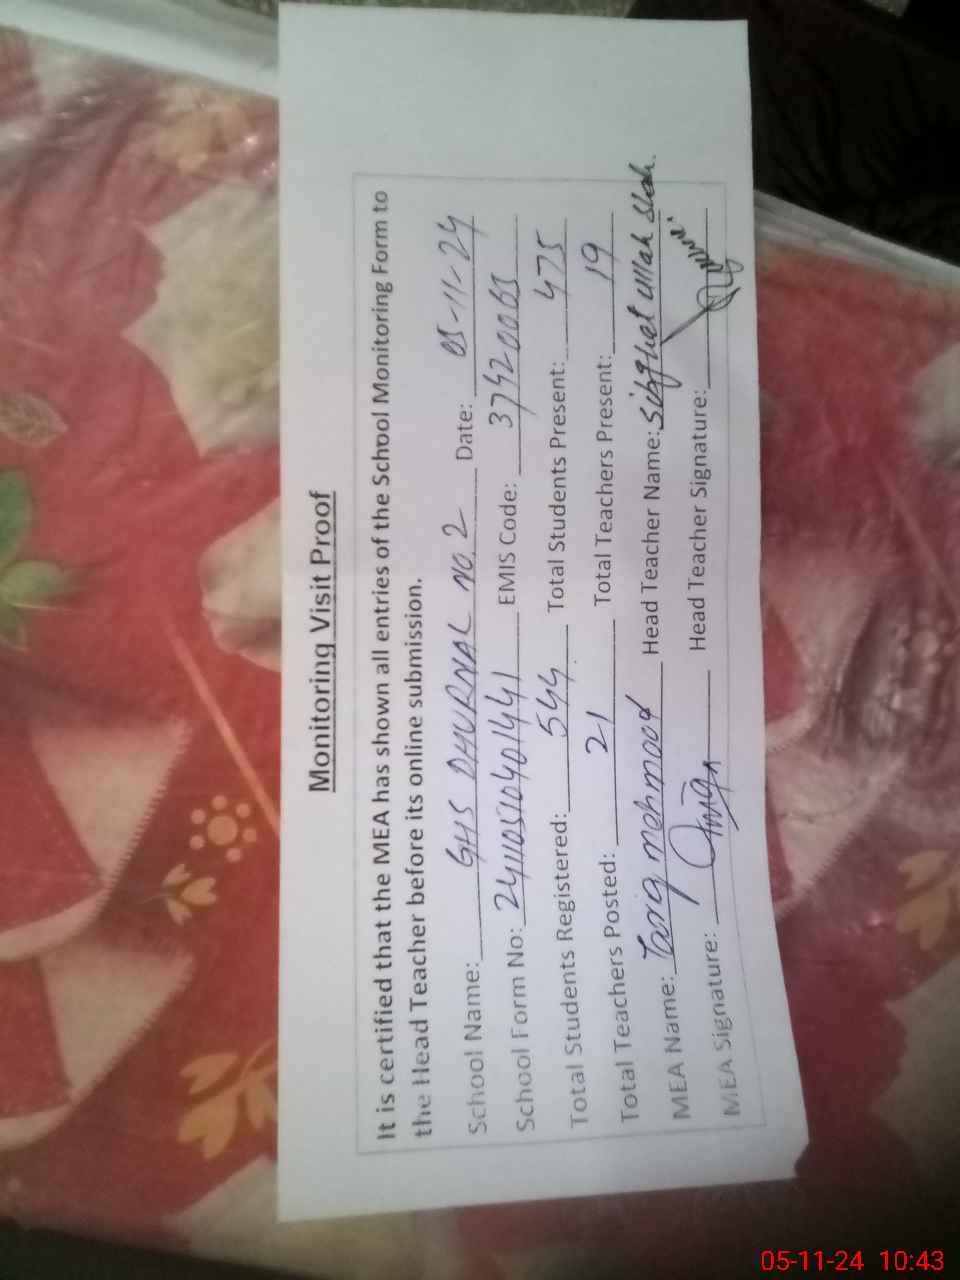 Monitoring Visit Proof
It is certified that the MEA has shown all entries of the School Monitoring Form to
the Head Teacher before its online submission.
School Name: GHS DHURNAL NO.2 Date: 05-11-24
School Form No: 24110510401441 EMIS Code: 37420065
Total Students Registered: 544 Total Students Present: 475
Total Teachers Posted: 21 Total Teachers Present: 19
MEA Name: Tariq mehmood Head Teacher Name: Sibghat ullah Shah.
MEA Signature: Head Teacher Signature:
05-11-24 10:43